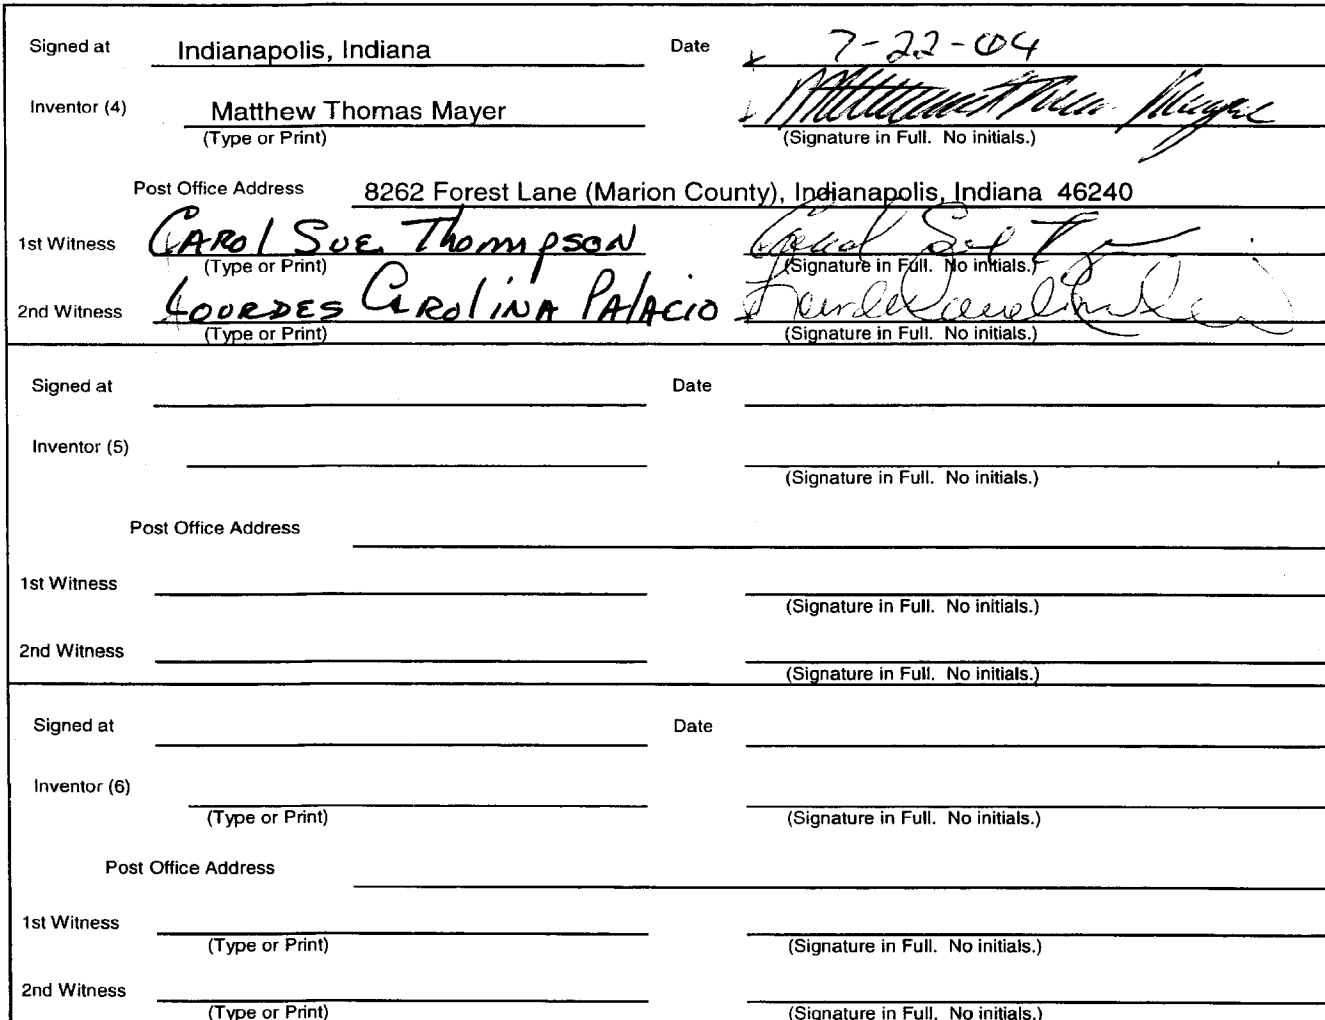 Signed at Indianapolis, Indiana Date 7-22-04
Inventor (4) Matthew Thomas Mayer
(Type or Print) (Signature in Full. No initials.)
Post Office Address 8262 Forest Lane (Marion County), Indianapolis, Indiana 46240
1st Witness CAROL SUE Thompson Carol Sue
(Type or Print) (Signature in Full. No initials.)
2nd Witness LOURDES CAROLINA PALACIO
(Type or Print) (Signature in Full. No initials.)
Signed at Date
Inventor (5)
(Signature in Full. No initials.)
Post Office Address
1st Witness
(Signature in Full. No initials.)
2nd Witness
(Signature in Full. No initials.)
Signed at Date
Inventor (6)
(Type or Print) (Signature in Full. No initials.)
Post Office Address
1st Witness
(Type or Print) (Signature in Full. No initials.)
2nd Witness
(Type or Print) (Signature in Full. No initials.)